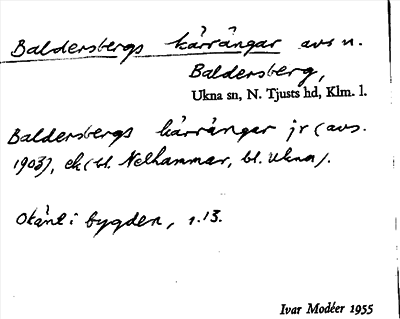 Baldersbergs kärrängar avs n.
Baldersberg,
Ukna sn, N. Tjusts hd, Klm. l.
Baldersbergs kärrängar jr (avs.
1903), ek (bl. Nelhammar, bl. Ukna).
Okänt i bygden, s. 13.
Ivar Modéer 1955